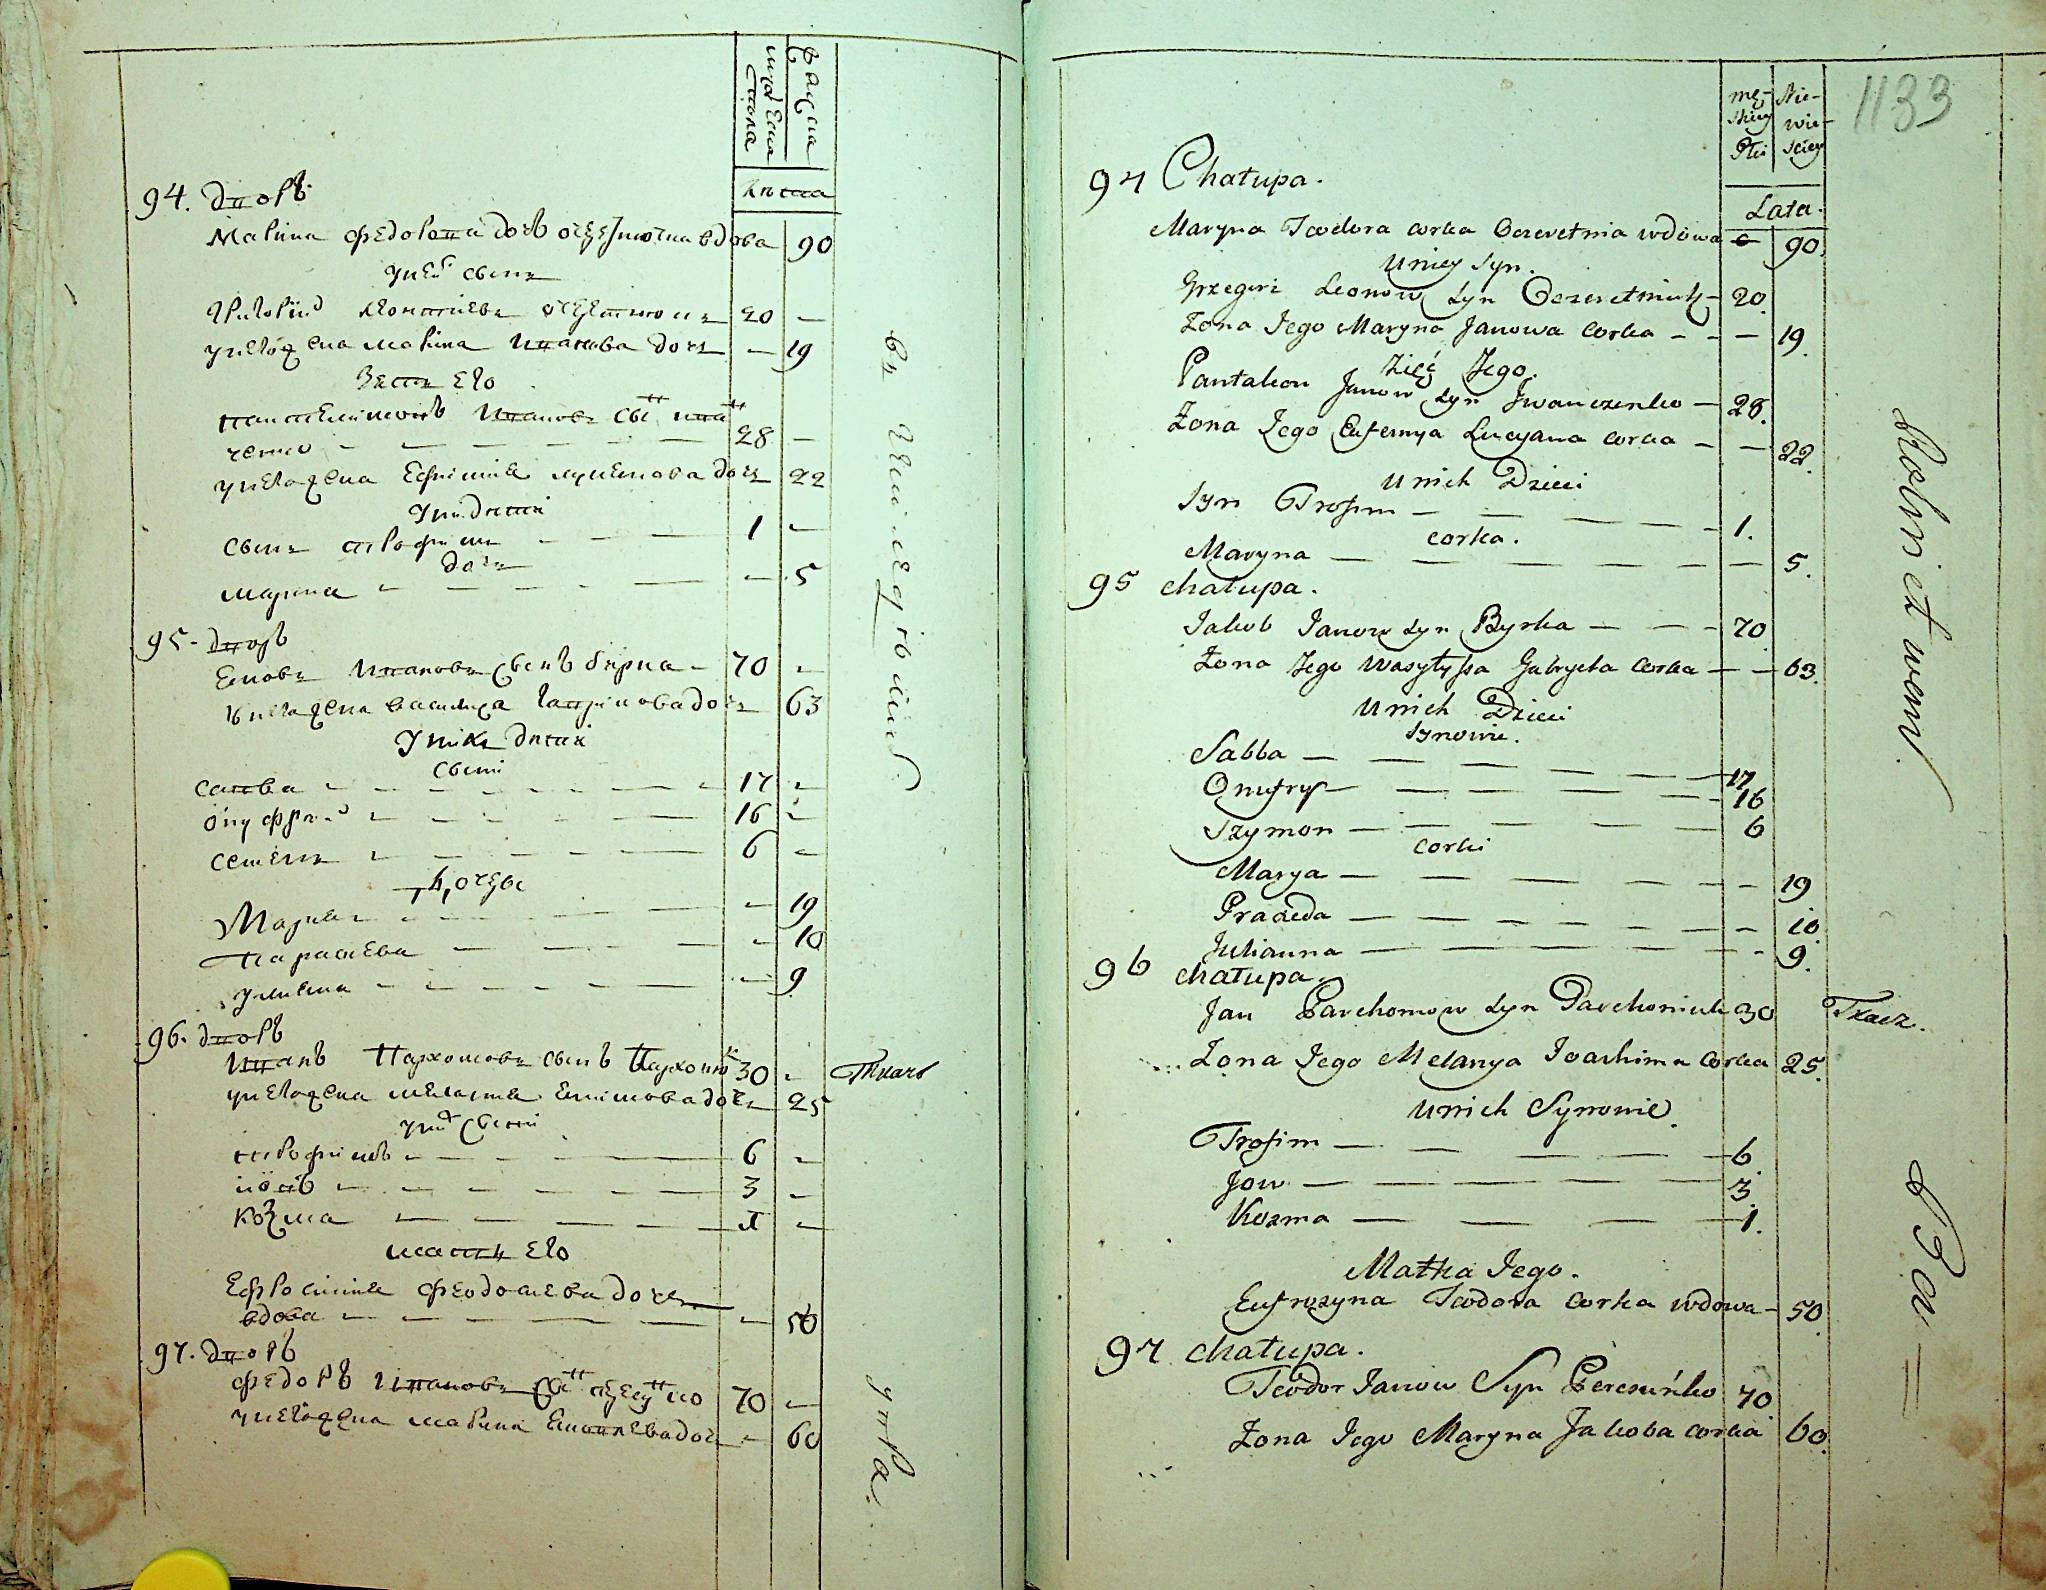 мужеска
пола
женска
лѣта
94. дворъ
Марина Федорова дочь очеретнюкова вдова 90
у неи сынъ
Григорий Леонтиевъ очеретнюкъ 20 —
у него жена Марина Иванова дочь — 19
Зять его
пантелимонъ Ивановъ сынъ иван
ченко — — — — 28 —
у него жена Ефимия лукянова дочь 22
у них дети
сынъ трофимъ — — — 1 —
дочь
марина — — — — — 5
95. дворъ
Яковъ Ивановъ сынъ бирка — 70 —
у него жена василиса гаврилова дочь 63
у нихъ дети
сыни
савва — — — — — 17 —
онуфрий — — — — 16 —
семенъ — — — — 6 —
дочери
Мария — — — — — 19
Параскева — — — — — 10
улияна — — — — — 9
96. дворъ
Иванъ Пархомовъ сынъ Пархомюк 30 — Ткачъ
у него жена мелания Екимова дочь 25
у них сыни
трофимъ — — — — 6 —
иовъ — — — — — 3 —
козма — — — — 1 —
мати его
Ефросиния феодосиева дочь
вдова — — — — — — 50
97. дворъ
федоръ Ивановъ сын пересунко 70 —
у него жена марина Яковлева дочь — 60
1133
męskiey Płci
Niewieściey
Lata.
94 Chałupa.
Maryna Teodora corka Oczeretnia wdowa — 90.
U niey Syn.
Grzegorz Leonow Syn Oczeretniuk — 20.
Żona Jego Maryna Janowa corka — — — 19.
Zięć Jego.
Pantaleon Janow Syn Iwanczenko — 28.
Żona Jego Eufemya Lucyana corka — — 22.
U nich Dzieci
Syn Trofim — — — — — 1.
corka.
Maryna — — — — — — — 5.
95 chałupa.
Jakob Janow Syn Byrka — — — 70
Żona Jego Wasylyssa Gabryela corka — — 63.
U nich Dzieci
Synowie.
Sabba — — — — — — 17
Onufry — — — — — 16
Szymon — — — — — 6
corki
Marya — — — — — — — 19
Praxeda — — — — — — — 10
Julianna — — — — — — 9.
96 chałupa.
Jan Parchomow Syn Parchomiuk 30 Tkacz.
Żona Jego Melanya Joachima corka 25.
U nich Synowie.
Trofim — — — — — 6.
Jow — — — — — 3.
Kozma — — — — 1.
Matka Jego.
Eufrozyna Teodora corka wdowa — 50.
97 chałupa.
Teodor Janow Syn Peresuńko 70
Żona Jego Maryna Jakoba corka 60.